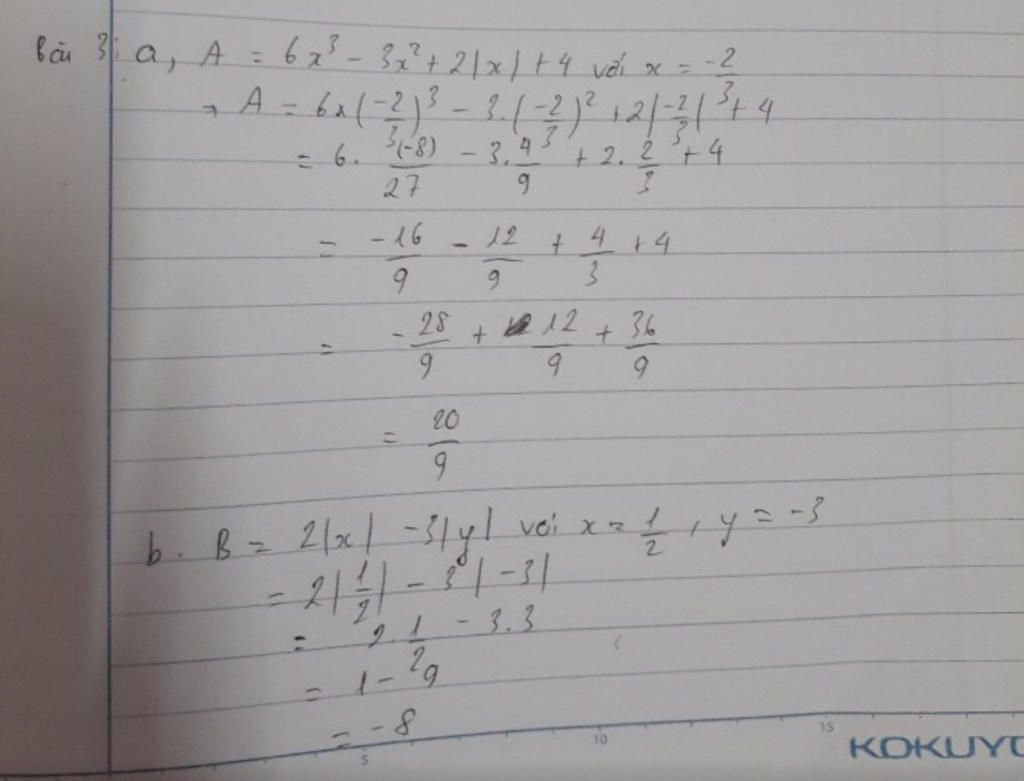 Bài 3: a, A = 6x³ - 3x² + 2|x| + 4 với x = -2/3
→ A = 6x(-2/3)³ - 3.(-2/3)² + 2|-2/3| + 4
= 6. (-8)/27 - 3. 4/9 + 2. 2/3 + 4
= -16/9 - 12/9 + 4/3 + 4
= -28/9 + 12/9 + 36/9
= 20/9
b. B = 2|x| - 3|y| với x = 1/2, y = -3
= 2|1/2| - 3|-3|
= 2. 1/2 - 3.3
= 1 - 9
= -8
5 10 15
KOKUYO